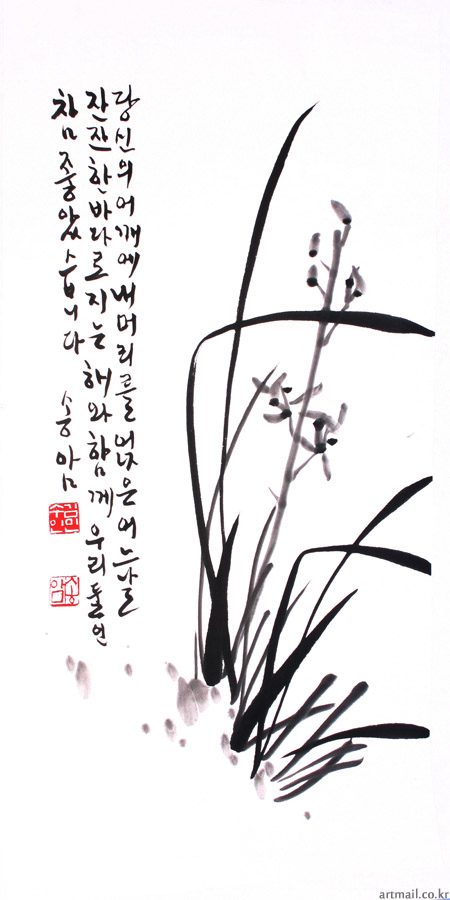 당신의 어깨에 내 머리를 얹은 어느 날
잔잔한 바다로 지는 해와 함께 우리 둘인
참 좋았습니다 송암
송암
artmail.co.kr